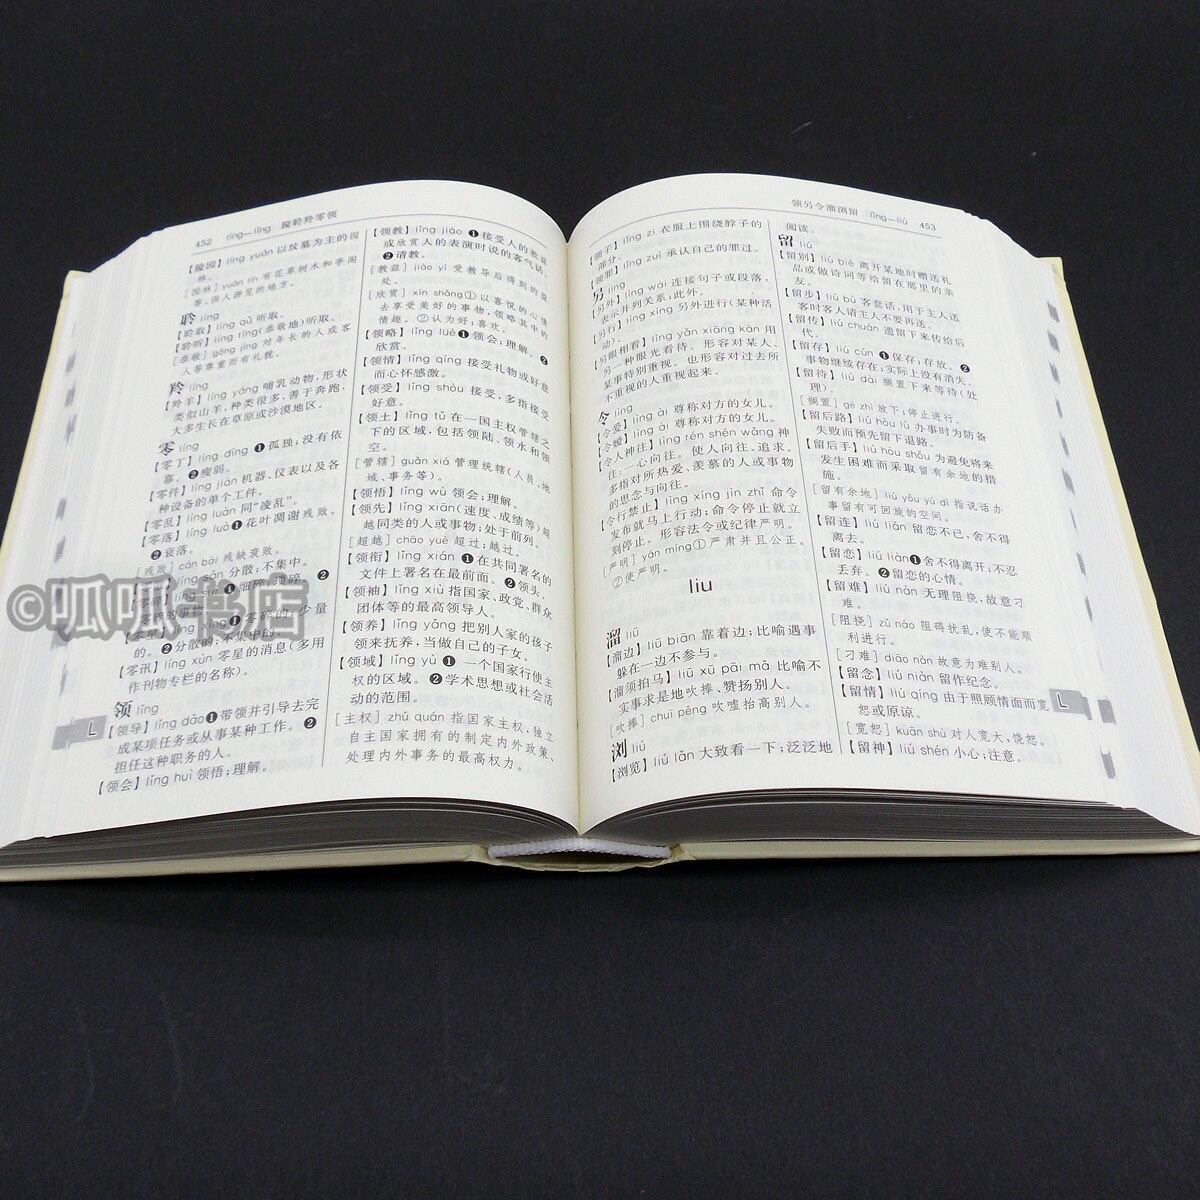 452 líng—lǐng 陵聆羚零领
【陵园】líng yuán 以坟墓为主的园
林。
[园林] yuán lín 有花草树木和亭阁
等,供人游览的地方。
聆 líng
【聆取】líng qǔ 听取。
【聆听】líng tīng(恭敬地)听取。
[恭敬] gōng jìng 对年长的人或客
人等尊重而有礼貌。
羚 líng
【羚羊】líng yáng 哺乳动物,形状
类似山羊,种类很多,善于奔跑,
大多生长在草原或沙漠地区。
零 líng
【零丁】líng dīng ❶孤独;没有依
靠。❷瘦弱。
【零件】líng jiàn 机器、仪表以及各
种设备的单个工件。
【零乱】líng luàn 同“凌乱”。
【零落】líng luò❶花叶凋谢残败。
❷衰落。
[残败] cán bài 残缺衰败。
líng sǎn 分散;不集中。
❶细碎;琐碎。❷
的事物
líng xīng❶零碎的;少量
的。❷分散的;不集中的。
【零讯】líng xùn 零星的消息(多用
作刊物专栏的名称)。
领 lǐng
【领导】lǐng dǎo❶带领并引导去完
成某项任务或从事某种工作。❷
担任这种职务的人。
【领会】lǐng huì 领悟;理解。
【领教】lǐng jiào ❶接受人的教益
或欣赏人的表演时说的客气话。
❷请教。
[教益] jiào yì 受教导后得到的益
处。
[欣赏] xīn shǎng①以喜悦的心情
去享受美好的事物,领略其中的
情趣。②认为好;喜欢。
【领略】lǐng lüè❶领会;理解。❷
欣赏。
【领情】lǐng qíng 接受礼物或好意
而心怀感激。
【领受】lǐng shòu 接受,多指接受
好意。
【领土】lǐng tǔ 在一国主权管辖之
下的区域,包括领陆、领水和领
空。
[管辖] guǎn xiá 管理统辖(人员、地
域、事务等)。
【领悟】lǐng wù 领会;理解。
【领先】lǐng xiān(速度、成绩等)超
越同类的人或事物;处于前列。
[超越] chāo yuè 超过;越过。
【领衔】lǐng xián ❶在共同署名的
文件上署名在最前面。❷领头。
【领袖】lǐng xiù 指国家、政党、群众
团体等的最高领导人。
【领养】lǐng yǎng 把别人家的孩子
领来抚养,当做自己的子女。
【领域】lǐng yù ❶一个国家行使主
权的区域。❷学术思想或社会活
动的范围。
[主权] zhǔ quán 指国家主权,独立
自主国家拥有的制定内外政策、
处理内外事务的最高权力。
L
领另令溜浏留 lǐng—liú 453
【领子】lǐng zi 衣服上围绕脖子的
部分。
【领罪】lǐng zuì 承认自己的罪过。
另 lìng
【另外】lìng wài 连接句子或段落,
表示并列关系;此外。
【另行】lìng xíng 另外进行(某种活
动)。
【另眼相看】lìng yǎn xiāng kàn 用
另一种眼光看待。形容对某人、
某事特别重视。也形容对过去所
不重视的人重视起来。
令 lìng
【令爱】lìng ài 尊称对方的女儿。
【令嫒】lìng ài 尊称对方的女儿。
【令人神往】lìng rén shén wǎng 神
往:一心向往。使人向往、追求。
多指对所热爱、羡慕的人或事物
的思念与向往。
【令行禁止】lìng xíng jìn zhǐ 命令
发布就马上行动;命令停止就立
刻停止。形容法令或纪律严明。
[严明] yán míng①严肃并且公正。
②使严明。
liu
溜 liū
【溜边】liū biān 靠着边;比喻遇事
躲在一边不参与。
【溜须拍马】liū xū pāi mǎ 比喻不
实事求是地吹捧、赞扬别人。
[吹捧] chuī pěng 吹嘘抬高别人。
浏 liú
【浏览】liú lǎn 大致看一下;泛泛地
阅读。
留 liú
【留别】liú bié 离开某地时赠送礼
品或做诗词等给留在那里的亲
友。
【留步】liú bù 客套话,用于主人送
客时客人请主人不要再送。
【留传】liú chuán 遗留下来传给后
代。
【留存】liú cún ❶保存;存放。❷
事物继续存在;实际上没有消失。
【留待】liú dài 搁置下来等待(处
理)。
[搁置] gē zhì 放下;停止进行。
【留后路】liú hòu lù 办事时为防备
失败而预先留下退路。
【留后手】liú hòu shǒu 为避免将来
发生困难而采取留有余地的措
施。
[留有余地] liú yǒu yú dì 指说话办
事留有可回旋的空间。
【留连】liú lián 留恋不已,舍不得
离去。
【留恋】liú liàn❶舍不得离开;不忍
丢弃。❷留恋的心情。
【留难】liú nàn 无理阻挠,故意刁
难。
[阻挠] zǔ náo 阻碍扰乱,使不能顺
利进行。
[刁难] diāo nàn 故意为难别人。
【留念】liú niàn 留作纪念。
【留情】liú qíng 由于照顾情面而宽
恕或原谅。
[宽恕] kuān shù 对人宽大,饶恕。
【留神】liú shén 小心;注意。
L
©呱呱书店